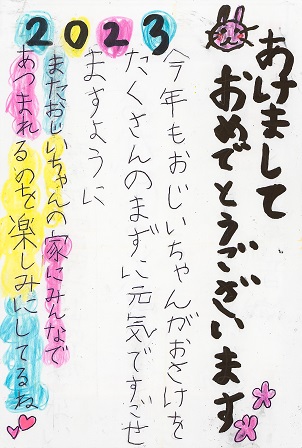 あけまして
おめでとうございます
2023
今年もおじいちゃんがおさけを
たくさんのまずに元気ですごせ
ますように
またおじいちゃんの家にみんなで
あつまれるのを楽しみにしてるね